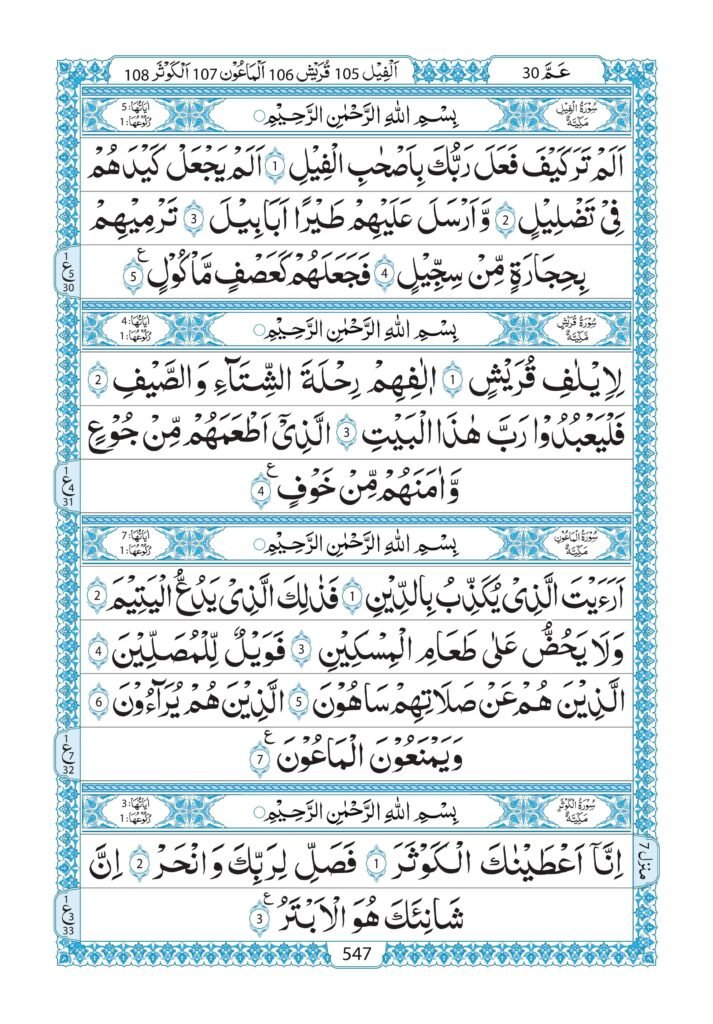 عَمَّ 30
اَلْفِيْل 105 قُرَيْش 106 اَلْمَاعُوْن 107 اَلْكَوْثَر 108
سُوْرَةُ الْفِيْلِ مَكِّيَّةٌ
بِسْمِ اللّٰهِ الرَّحْمٰنِ الرَّحِيْمِ
اٰيَاتُهَا: 5
رُكُوْعُهَا: 1
اَلَمْ تَرَ كَيْفَ فَعَلَ رَبُّكَ بِاَصْحٰبِ الْفِيْلِ 1 اَلَمْ يَجْعَلْ كَيْدَهُمْ
فِيْ تَضْلِيْلٍ 2 وَّاَرْسَلَ عَلَيْهِمْ طَيْرًا اَبَابِيْلَ 3 تَرْمِيْهِمْ
بِحِجَارَةٍ مِّنْ سِجِّيْلٍ 4 فَجَعَلَهُمْ كَعَصْفٍ مَّاْكُوْلٍ 5
1
ع 5
30
سُوْرَةُ قُرَيْشٍ مَكِّيَّةٌ
بِسْمِ اللّٰهِ الرَّحْمٰنِ الرَّحِيْمِ
اٰيَاتُهَا: 4
رُكُوْعُهَا: 1
لِاِيْلٰفِ قُرَيْشٍ 1 اٖلٰفِهِمْ رِحْلَةَ الشِّتَآءِ وَالصَّيْفِ 2
فَلْيَعْبُدُوْا رَبَّ هٰذَا الْبَيْتِ 3 الَّذِيْٓ اَطْعَمَهُمْ مِّنْ جُوْعٍ
وَّاٰمَنَهُمْ مِّنْ خَوْفٍ 4
1
ع 4
31
سُوْرَةُ الْمَاعُوْنِ مَكِّيَّةٌ
بِسْمِ اللّٰهِ الرَّحْمٰنِ الرَّحِيْمِ
اٰيَاتُهَا: 7
رُكُوْعُهَا: 1
اَرَءَيْتَ الَّذِيْ يُكَذِّبُ بِالدِّيْنِ 1 فَذٰلِكَ الَّذِيْ يَدُعُّ الْيَتِيْمَ 2
وَلَا يَحُضُّ عَلٰى طَعَامِ الْمِسْكِيْنِ 3 فَوَيْلٌ لِّلْمُصَلِّيْنَ 4
الَّذِيْنَ هُمْ عَنْ صَلَاتِهِمْ سَاهُوْنَ 5 الَّذِيْنَ هُمْ يُرَآءُوْنَ 6
وَيَمْنَعُوْنَ الْمَاعُوْنَ 7
1
ع 7
32
سُوْرَةُ الْكَوْثَرِ مَكِّيَّةٌ
بِسْمِ اللّٰهِ الرَّحْمٰنِ الرَّحِيْمِ
اٰيَاتُهَا: 3
رُكُوْعُهَا: 1
اِنَّآ اَعْطَيْنٰكَ الْكَوْثَرَ 1 فَصَلِّ لِرَبِّكَ وَانْحَرْ 2 اِنَّ
منزل 7
شَانِئَكَ هُوَ الْاَبْتَرُ 3
1
ع 3
33
547